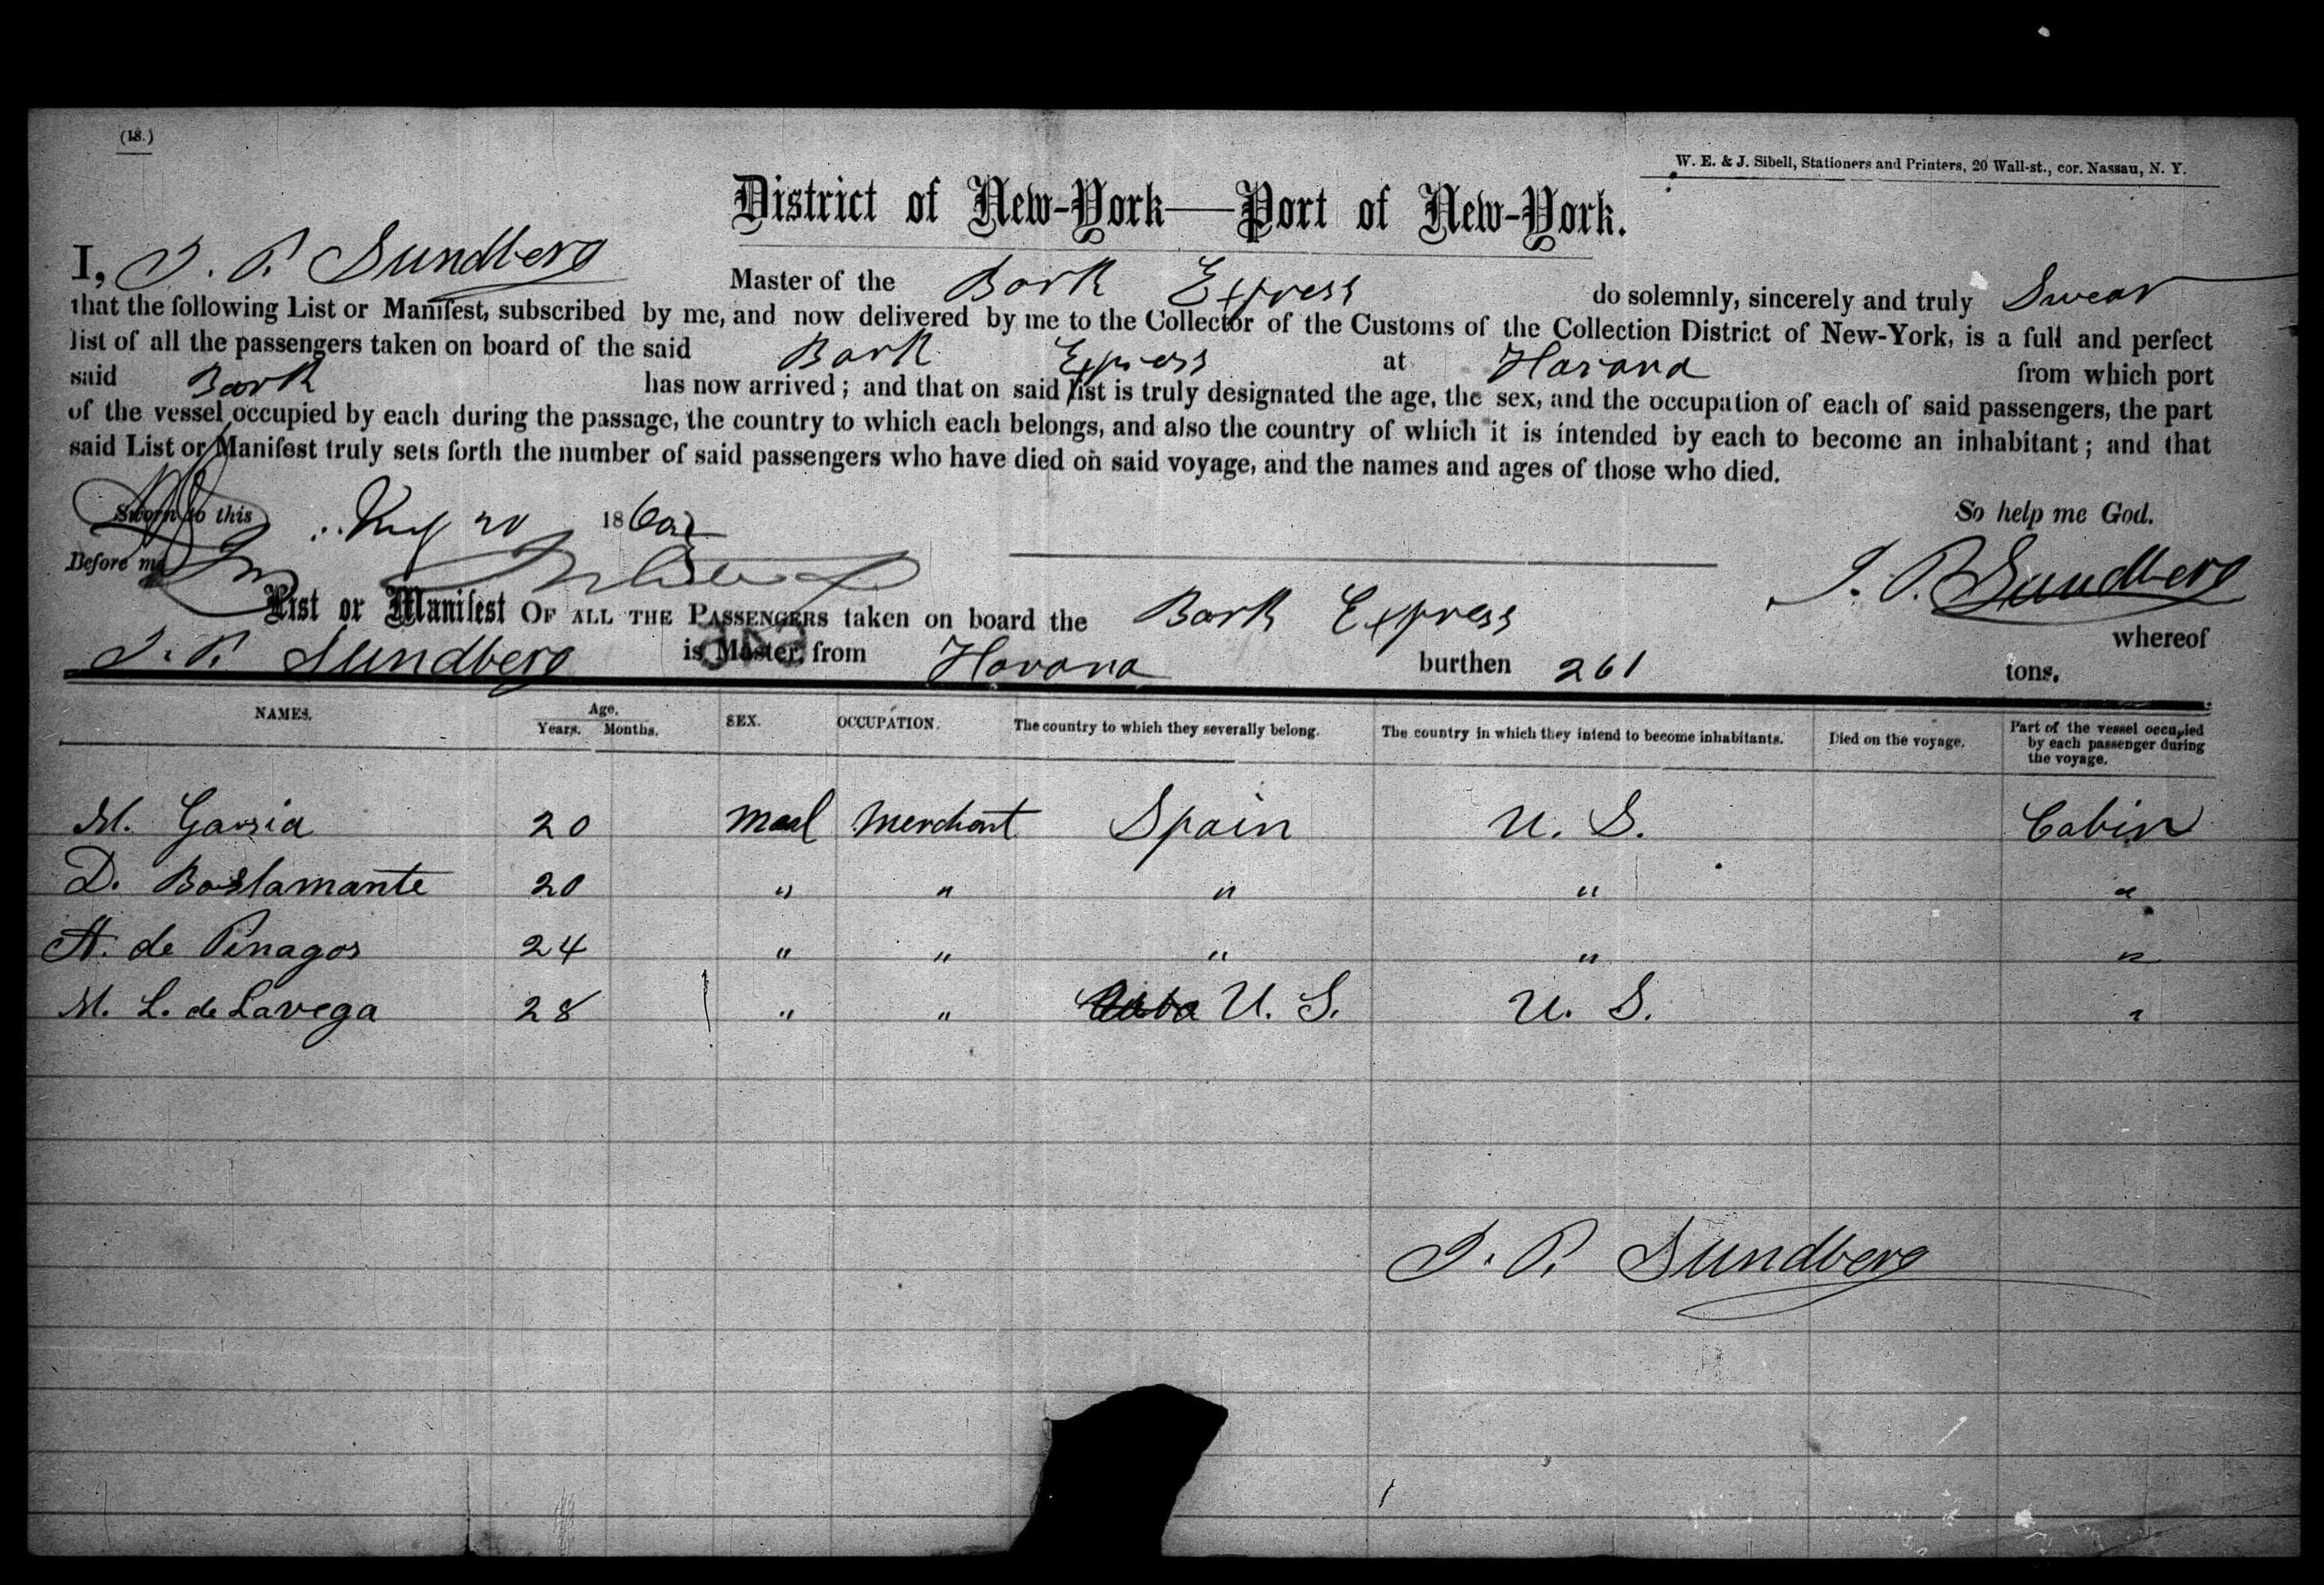 (18.)
W. E. & J. Sibell, Stationers and Printers, 20 Wall-st., cor. Nassau, N. Y.
District of New-York—Port of New-York.
I, J. P. Sundberg Master of the Bark Express do solemnly, sincerely and truly Swear
that the following List or Manifest, subscribed by me, and now delivered by me to the Collector of the Customs of the Collection District of New-York, is a full and perfect
list of all the passengers taken on board of the said Bark Express at Havana from which port
said Bark has now arrived; and that on said list is truly designated the age, the sex, and the occupation of each of said passengers, the part
of the vessel occupied by each during the passage, the country to which each belongs, and also the country of which it is intended by each to become an inhabitant; and that
said List or Manifest truly sets forth the number of said passengers who have died on said voyage, and the names and ages of those who died.
Sworn to this 20 186 So help me God.
Before me J. P. Sundberg
List or Manifest OF ALL THE PASSENGERS taken on board the Bark Express whereof
J. P. Sundberg is Master, from Havana burthen 261 tons.
NAMES. Age. Years. Months. SEX. OCCUPATION. The country to which they severally belong. The country in which they intend to become inhabitants. Died on the voyage. Part of the vessel occupied by each passenger during the voyage.
M. Garsia 20 Mael Merchant Spain U. S. Cabin
D. Bostamante 20 " " " " "
A. de Pinagos 24 " " " " "
M. L. de Lavega 28 " " Cuba U. S. U. S. "
J. P. Sundberg